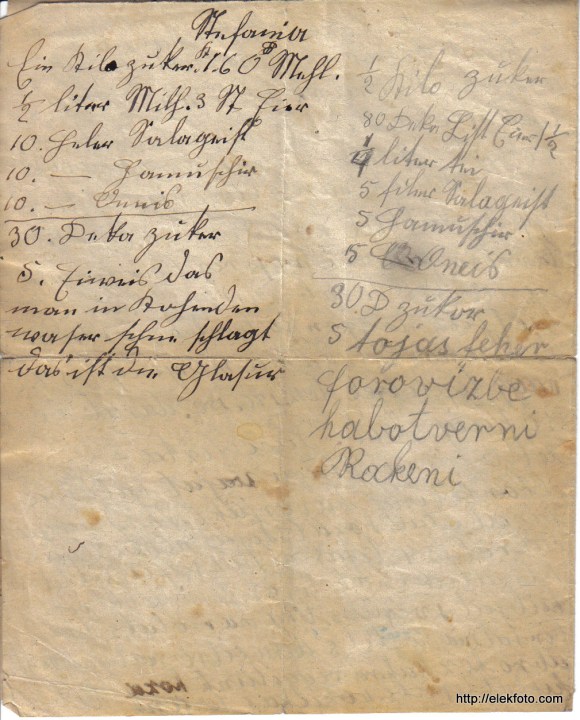 Stefania
Ein Kilo zuker. 1.60 Mehl.
½ liter Milh. 3 St Eier
10. Heler Salageist
10. — Hamuschir
10. — Onnis
30. Deka zuker
5. Eiweis das
man in Kohenden
waser schne schlagt
das ist die Glasur
½ Kilo zuker
80 Deka List Eier 1½
¼ liter tei
5 filer Salageist
5 Hamuschir.
5 Oneis
30. D zukor
5 tojas fehér
forovizbe
habotverni
Rakeni
http://elekfoto.com